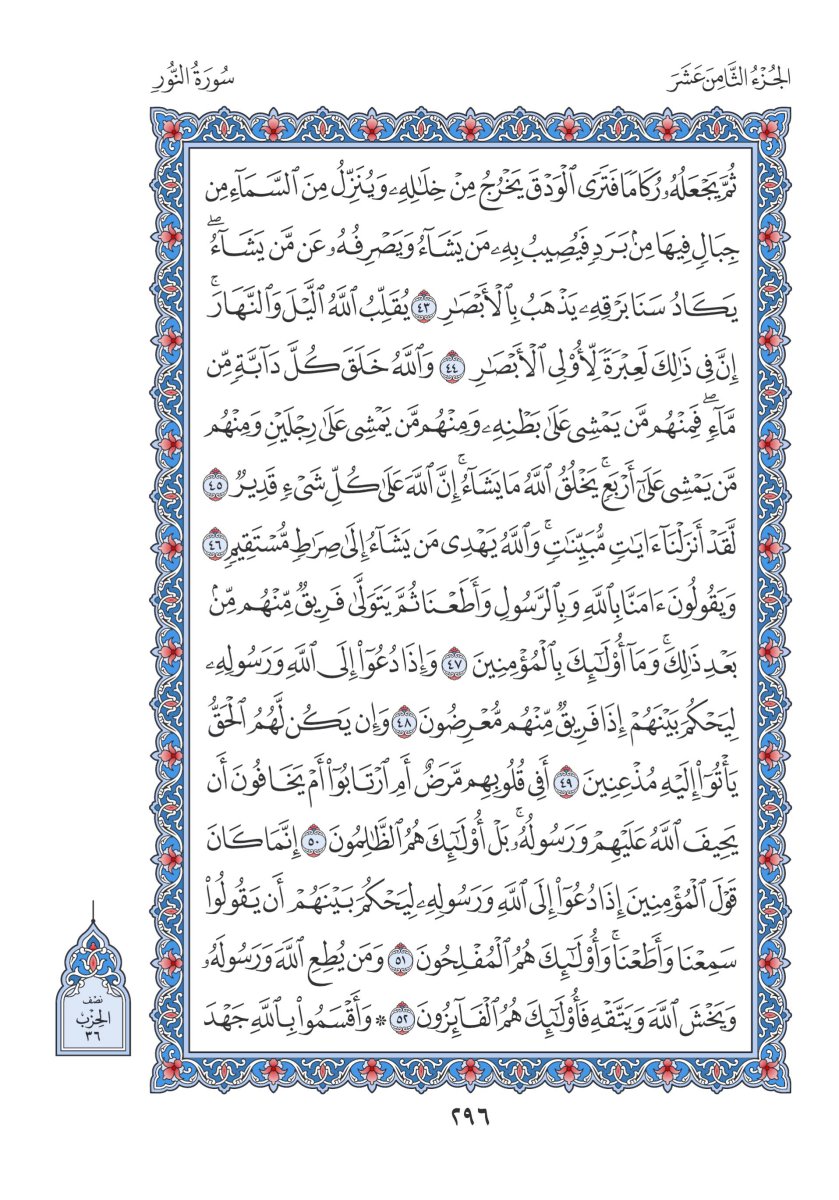 الجُزْءُ الثَّامِنَ عَشَرَ
سُورَةُ النُّورِ
ثُمَّ يَجْعَلُهُۥ رُكَامًا فَتَرَى ٱلْوَدْقَ يَخْرُجُ مِنْ خِلَـٰلِهِۦ وَيُنَزِّلُ مِنَ ٱلسَّمَآءِ مِن
جِبَالٍ فِيهَا مِنۢ بَرَدٍ فَيُصِيبُ بِهِۦ مَن يَشَآءُ وَيَصْرِفُهُۥ عَن مَّن يَشَآءُۖ
يَكَادُ سَنَا بَرْقِهِۦ يَذْهَبُ بِٱلْأَبْصَـٰرِ ٤٣ يُقَلِّبُ ٱللَّهُ ٱلَّيْلَ وَٱلنَّهَارَۚ
إِنَّ فِى ذَٰلِكَ لَعِبْرَةً لِّأُو۟لِى ٱلْأَبْصَـٰرِ ٤٤ وَٱللَّهُ خَلَقَ كُلَّ دَآبَّةٍ مِّن
مَّآءٍۖ فَمِنْهُم مَّن يَمْشِى عَلَىٰ بَطْنِهِۦ وَمِنْهُم مَّن يَمْشِى عَلَىٰ رِجْلَيْنِ وَمِنْهُم
مَّن يَمْشِى عَلَىٰٓ أَرْبَعٍۚ يَخْلُقُ ٱللَّهُ مَا يَشَآءُۚ إِنَّ ٱللَّهَ عَلَىٰ كُلِّ شَىْءٍ قَدِيرٌ ٤٥
لَّقَدْ أَنزَلْنَآ ءَايَـٰتٍ مُّبَيِّنَـٰتٍۚ وَٱللَّهُ يَهْدِى مَن يَشَآءُ إِلَىٰ صِرَٰطٍ مُّسْتَقِيمٍ ٤٦
وَيَقُولُونَ ءَامَنَّا بِٱللَّهِ وَبِٱلرَّسُولِ وَأَطَعْنَا ثُمَّ يَتَوَلَّىٰ فَرِيقٌ مِّنْهُم مِّنۢ
بَعْدِ ذَٰلِكَۚ وَمَآ أُو۟لَـٰٓئِكَ بِٱلْمُؤْمِنِينَ ٤٧ وَإِذَا دُعُوٓا۟ إِلَى ٱللَّهِ وَرَسُولِهِۦ
لِيَحْكُمَ بَيْنَهُمْ إِذَا فَرِيقٌ مِّنْهُم مُّعْرِضُونَ ٤٨ وَإِن يَكُن لَّهُمُ ٱلْحَقُّ
يَأْتُوٓا۟ إِلَيْهِ مُذْعِنِينَ ٤٩ أَفِى قُلُوبِهِم مَّرَضٌ أَمِ ٱرْتَابُوٓا۟ أَمْ يَخَافُونَ أَن
يَحِيفَ ٱللَّهُ عَلَيْهِمْ وَرَسُولُهُۥۚ بَلْ أُو۟لَـٰٓئِكَ هُمُ ٱلظَّـٰلِمُونَ ٥٠ إِنَّمَا كَانَ
قَوْلَ ٱلْمُؤْمِنِينَ إِذَا دُعُوٓا۟ إِلَى ٱللَّهِ وَرَسُولِهِۦ لِيَحْكُمَ بَيْنَهُمْ أَن يَقُولُوا۟
سَمِعْنَا وَأَطَعْنَاۚ وَأُو۟لَـٰٓئِكَ هُمُ ٱلْمُفْلِحُونَ ٥١ وَمَن يُطِعِ ٱللَّهَ وَرَسُولَهُۥ
وَيَخْشَ ٱللَّهَ وَيَتَّقْهِ فَأُو۟لَـٰٓئِكَ هُمُ ٱلْفَآئِزُونَ ٥٢ * وَأَقْسَمُوا۟ بِٱللَّهِ جَهْدَ
نصف
الحِزْب
٣٦
٢٩٦